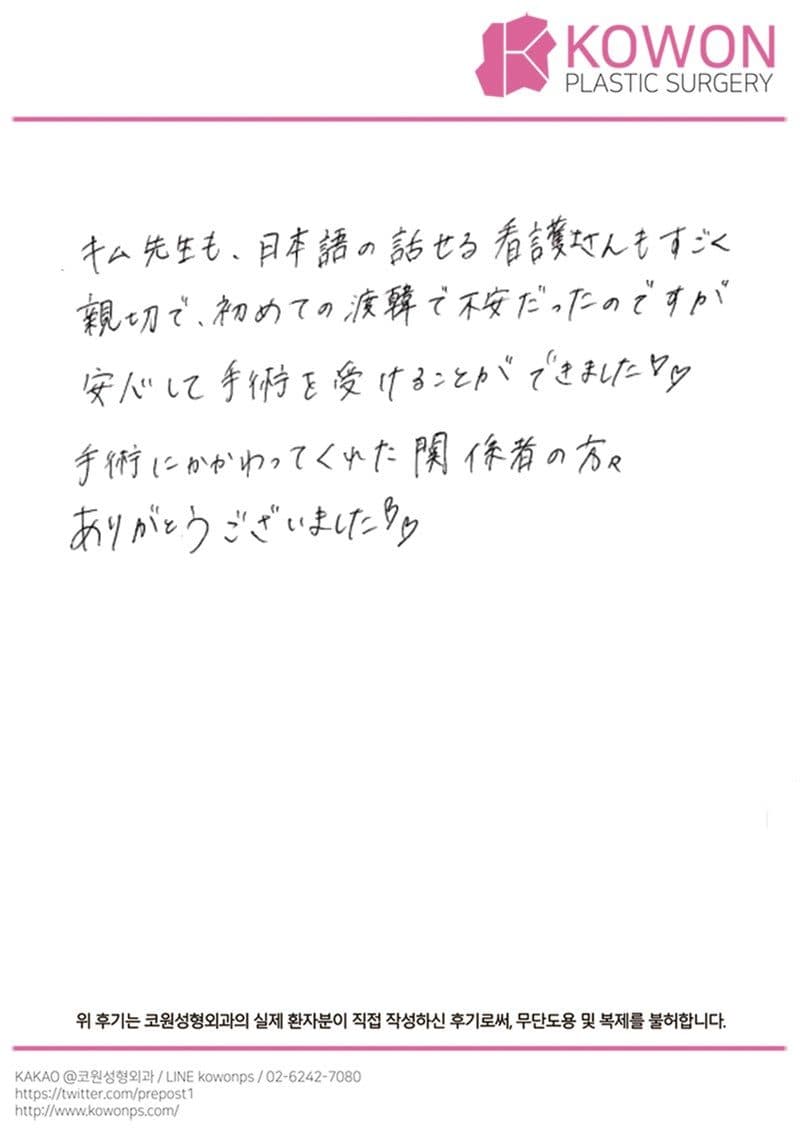 KOWON
PLASTIC SURGERY
キム先生も、日本語の話せる看護さんもすごく
親切で、初めての渡韓で不安だったのですが
安心して手術を受けることができました♡♡
手術にかかわってくれた関係者の方々
ありがとうございました♡♡
위 후기는 코원성형외과의 실제 환자분이 직접 작성하신 후기로써, 무단도용 및 복제를 불허합니다.
KAKAO @코원성형외과 / LINE kowonps / 02-6242-7080
https://twitter.com/prepost1
http://www.kowonps.com/